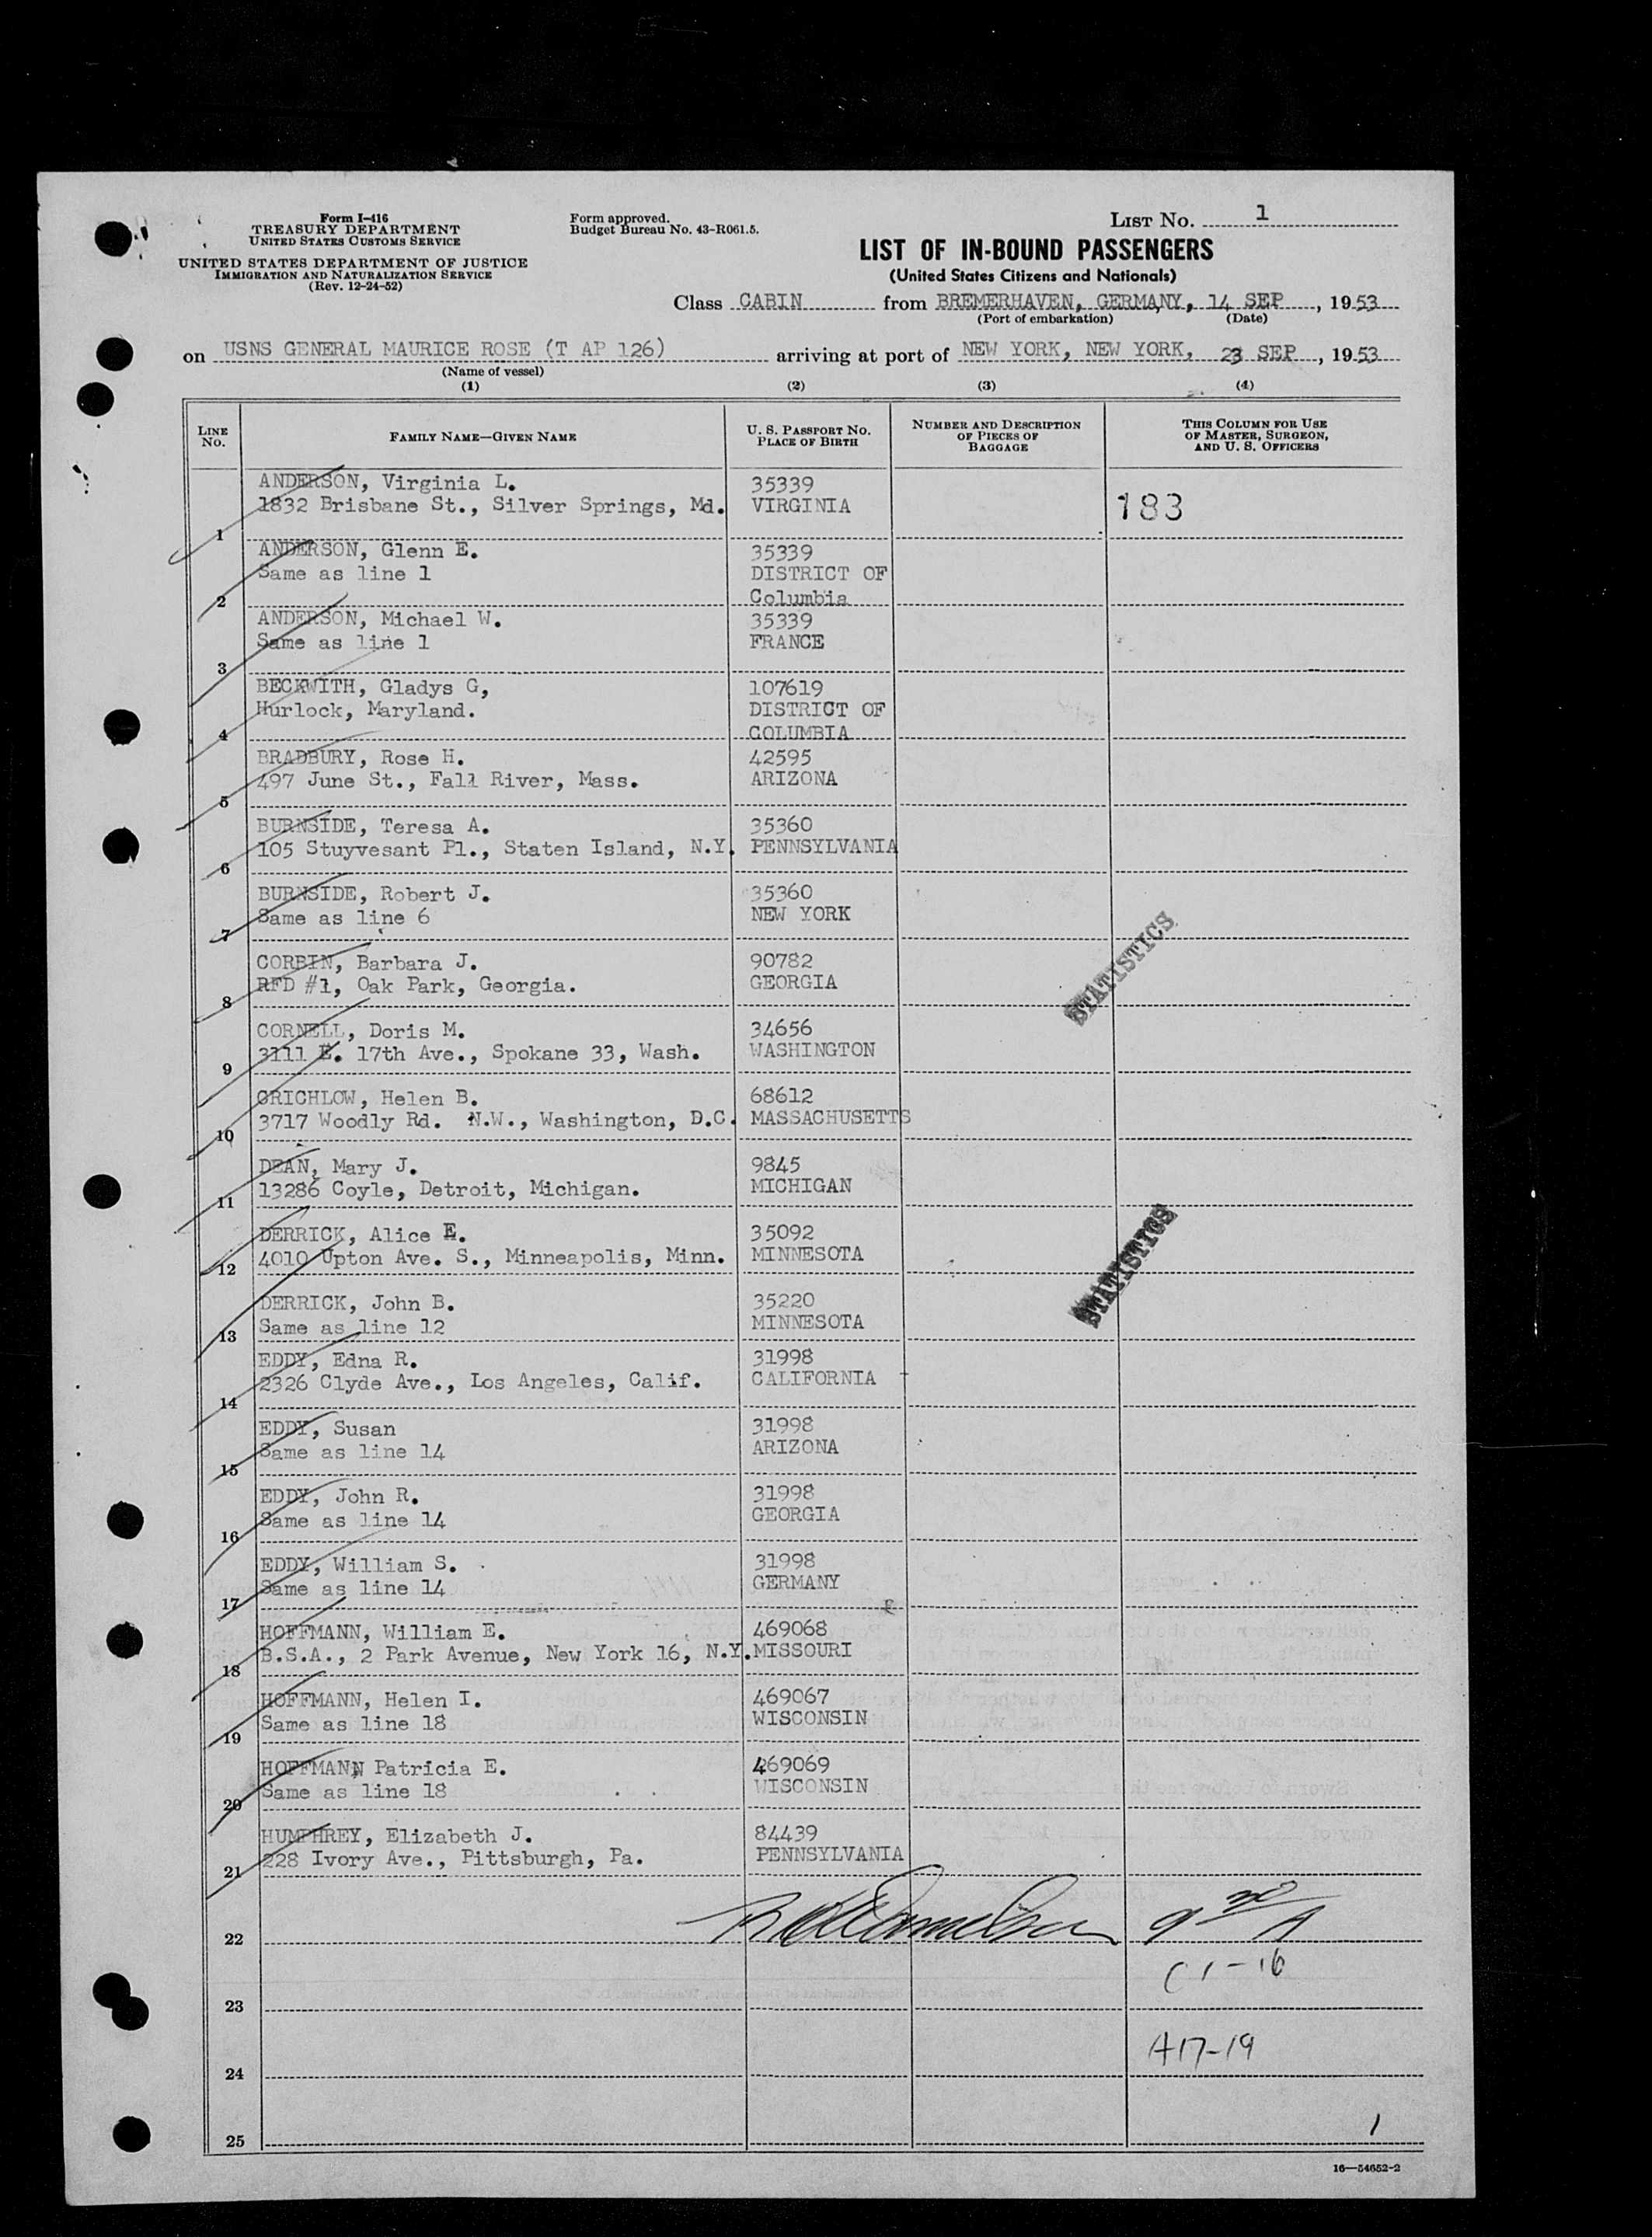 Form I-416
TREASURY DEPARTMENT
UNITED STATES CUSTOMS SERVICE
UNITED STATES DEPARTMENT OF JUSTICE
IMMIGRATION AND NATURALIZATION SERVICE
(Rev. 12-24-52)
Form approved.
Budget Bureau No. 43-R061.5.
LIST NO. 1
LIST OF IN-BOUND PASSENGERS
(United States Citizens and Nationals)
Class CABIN from BREMERHAVEN, GERMANY, 14 SEP, 1953
(Port of embarkation) (Date)
on USNS GENERAL MAURICE ROSE (T AP 126) arriving at port of NEW YORK, NEW YORK, 23 SEP, 1953
(Name of vessel)
(1) (2) (3) (4)
LINE NO. FAMILY NAME—GIVEN NAME U. S. PASSPORT NO. PLACE OF BIRTH NUMBER AND DESCRIPTION OF PIECES OF BAGGAGE THIS COLUMN FOR USE OF MASTER, SURGEON, AND U. S. OFFICERS
ANDERSON, Virginia L. 35339
1832 Brisbane St., Silver Springs, Md. VIRGINIA 183
1
ANDERSON, Glenn E. 35339
Same as line 1 DISTRICT OF
2 Columbia
ANDERSON, Michael W. 35339
Same as line 1 FRANCE
3
BECKWITH, Gladys G, 107619
Hurlock, Maryland. DISTRICT OF
4 COLUMBIA
BRADBURY, Rose H. 42595
497 June St., Fall River, Mass. ARIZONA
5
BURNSIDE, Teresa A. 35360
105 Stuyvesant Pl., Staten Island, N.Y. PENNSYLVANIA
6
BURNSIDE, Robert J. 35360
Same as line 6 NEW YORK
7
STATISTICS
CORBIN, Barbara J. 90782
RFD #1, Oak Park, Georgia. GEORGIA
8
CORNELL, Doris M. 34656
3111 E. 17th Ave., Spokane 33, Wash. WASHINGTON
9
CRICHLOW, Helen B. 68612
3717 Woodly Rd. N.W., Washington, D.C. MASSACHUSETTS
10
DEAN, Mary J. 9845
13286 Coyle, Detroit, Michigan. MICHIGAN
11
DERRICK, Alice E. 35092
4010 Upton Ave. S., Minneapolis, Minn. MINNESOTA
12
STATISTICS
DERRICK, John B. 35220
Same as line 12 MINNESOTA
13
EDDY, Edna R. 31998
2326 Clyde Ave., Los Angeles, Calif. CALIFORNIA
14
EDDY, Susan 31998
Same as line 14 ARIZONA
15
EDDY, John R. 31998
Same as line 14 GEORGIA
16
EDDY, William S. 31998
Same as line 14 GERMANY
17
HOFFMANN, William E. 469068
B.S.A., 2 Park Avenue, New York 16, N.Y. MISSOURI
18
HOFFMANN, Helen I. 469067
Same as line 18 WISCONSIN
19
HOFFMANN, Patricia E. 469069
Same as line 18 WISCONSIN
20
HUMPHREY, Elizabeth J. 84439
228 Ivory Ave., Pittsburgh, Pa. PENNSYLVANIA
21
22
C 1-16
23
A17-19
24
1
25
16—54652-2